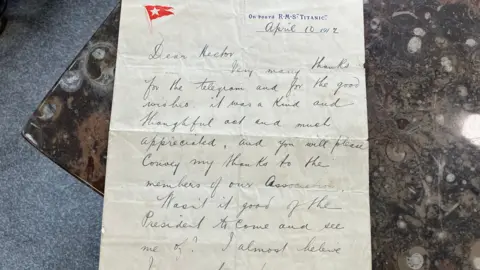 On board R·M·S "Titanic".
April 10 1912
Dear Rector
Very many thanks
for the telegram and for the good
wishes. it was a kind and
thoughtful act and much
appreciated, and you will please
Convey my thanks to the
members of our
Wasn't it good of the
President to come and see
me of? I almost beleve